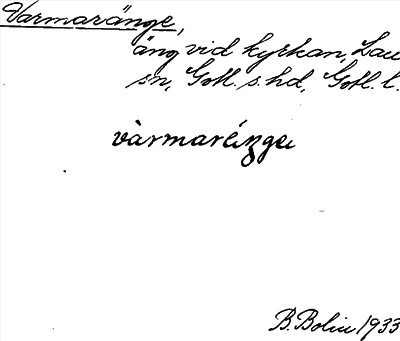 Varmaränge,
äng vid kyrkan, Lau
sn, Gotl. s. hd, Gotl. l.
vàrmaréŋge
B. Bolin 1933